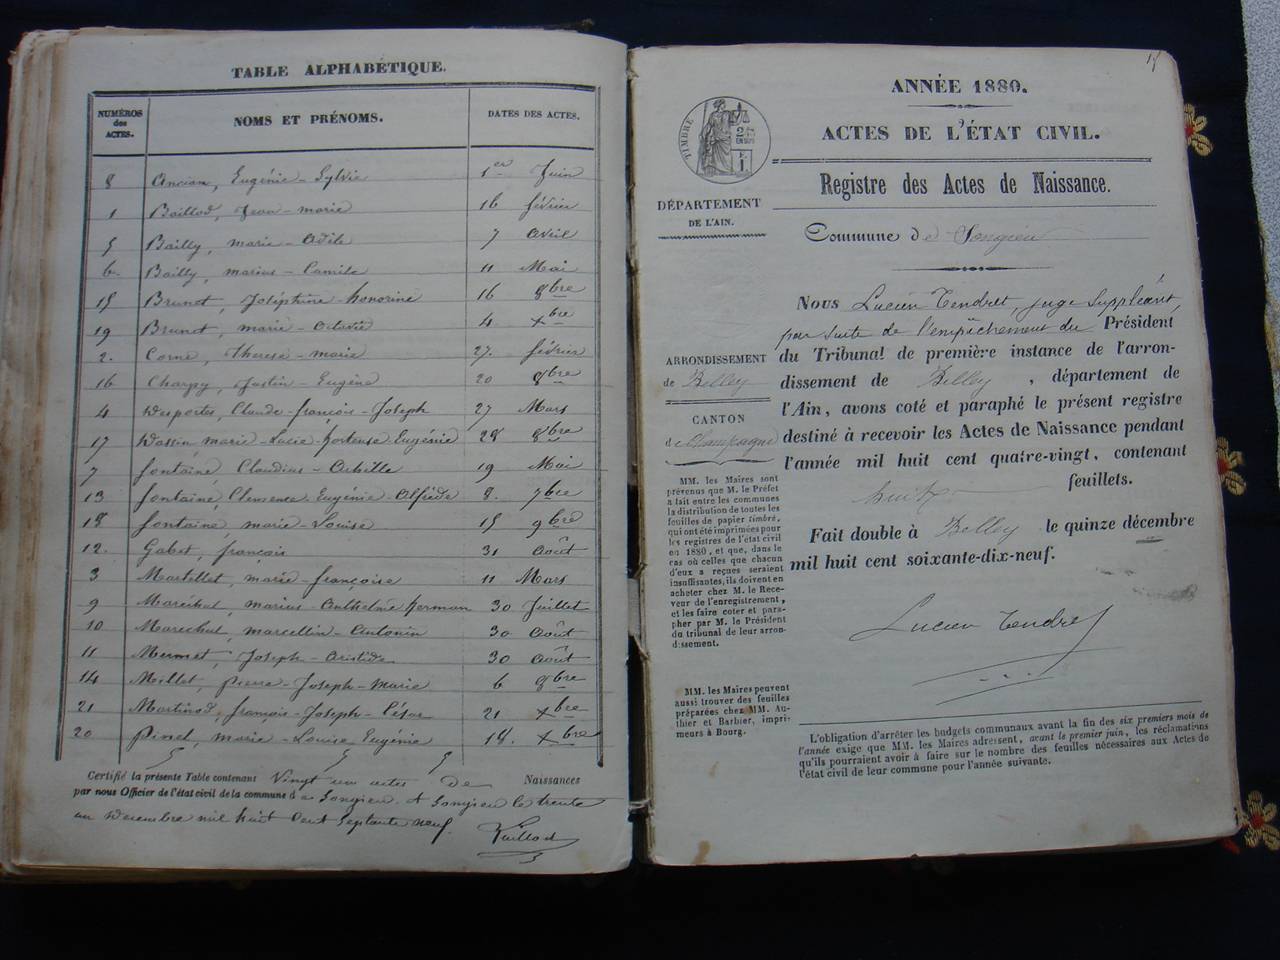 TABLE ALPHABÉTIQUE.
NUMÉROS des ACTES. NOMS ET PRÉNOMS. DATES DES ACTES.
8 Ancian, Eugénie-Sylvie 1er Juin
1 Baillod, Jean-marie 16 février
5 Bailly, marie-Adèle 7 Avril
6 Bailly, marius-Camile 11 Mai
15 Brunet, Joséphine-honorine 16 8bre
19 Brunet, marie-Octavie 4 xbre
2. Corne, Therese-marie 27. février
16 Charpy, Justin-Eugène 20 8bre
4 Desportes, Claude-françois-Joseph 27 Mars
17 marie-Lucie-hortense Eugénie 28 8bre
7 fontaine, Claudius-Achille 19 Mai
13 fontaine, Clemence-Eugénie-Alfrède 8. 7bre
18 fontaine marie-Louise 15 9bre
12. Gabet, françois 31 Août
3 Martellet, marie-françoise 11 Mars
9 Maréchal, marius-Anthelme herman 30 Juillet
10 Marechal, marcellin-Antonin 30 Août
11 Mermet, Joseph-Aristide 30 Août
14 Millet, pierre-Joseph-Marie 6 8bre
21 Martinod, françois-Joseph-César 21 xbre
20 Pinel, marie-Louise Eugénie 18. xbre
Certifié la présente Table contenant Vingt un actes de Naissances
par nous Officier de l'état civil de la commune de Songieu. A Songieu le trente
un Décembre mil huit Cent Septante neuf.
15
ANNÉE 1880.
ACTES DE L'ÉTAT CIVIL.
Registre des Actes de Naissance.
TIMBRE
DÉPARTEMENT
DE L'AIN.
Commune de Songieu
Nous Lucien Tendret, juge Suppléant,
par suite de l'empêchement du Président
du Tribunal de première instance de l'arron-
dissement de Belley, département de
l'Ain, avons coté et paraphé le présent registre
destiné à recevoir les Actes de Naissance pendant
l'année mil huit cent quatre-vingt, contenant
huit feuillets.
Fait double à Belley le quinze décembre
mil huit cent soixante-dix-neuf.
Lucien Tendret
ARRONDISSEMENT
de Belley
CANTON
de Champagne
MM. les Maires sont
prévenus que M. le Préfet
a fait entre les communes
la distribution de toutes les
feuilles de papier timbré,
qui ont été imprimées pour
les registres de l'état civil
en 1880, et que, dans le
cas où celles que chacun
d'eux a reçues seraient
insuffisantes, ils doivent en
acheter chez M. le Rece-
veur de l'enregistrement,
et les faire coter et para-
pher par M. le Président
du tribunal de leur arron-
dissement.
MM. les Maires peuvent
aussi trouver des feuilles
préparées chez MM. Au-
thier et Barbier, impri-
meurs à Bourg.
L'obligation d'arrêter les budgets communaux avant la fin des six premiers mois de
l'année exige que MM. les Maires adressent, avant le premier juin, les réclamations
qu'ils pourraient avoir à faire sur le nombre des feuilles nécessaires aux Actes de
l'état civil de leur commune pour l'année suivante.